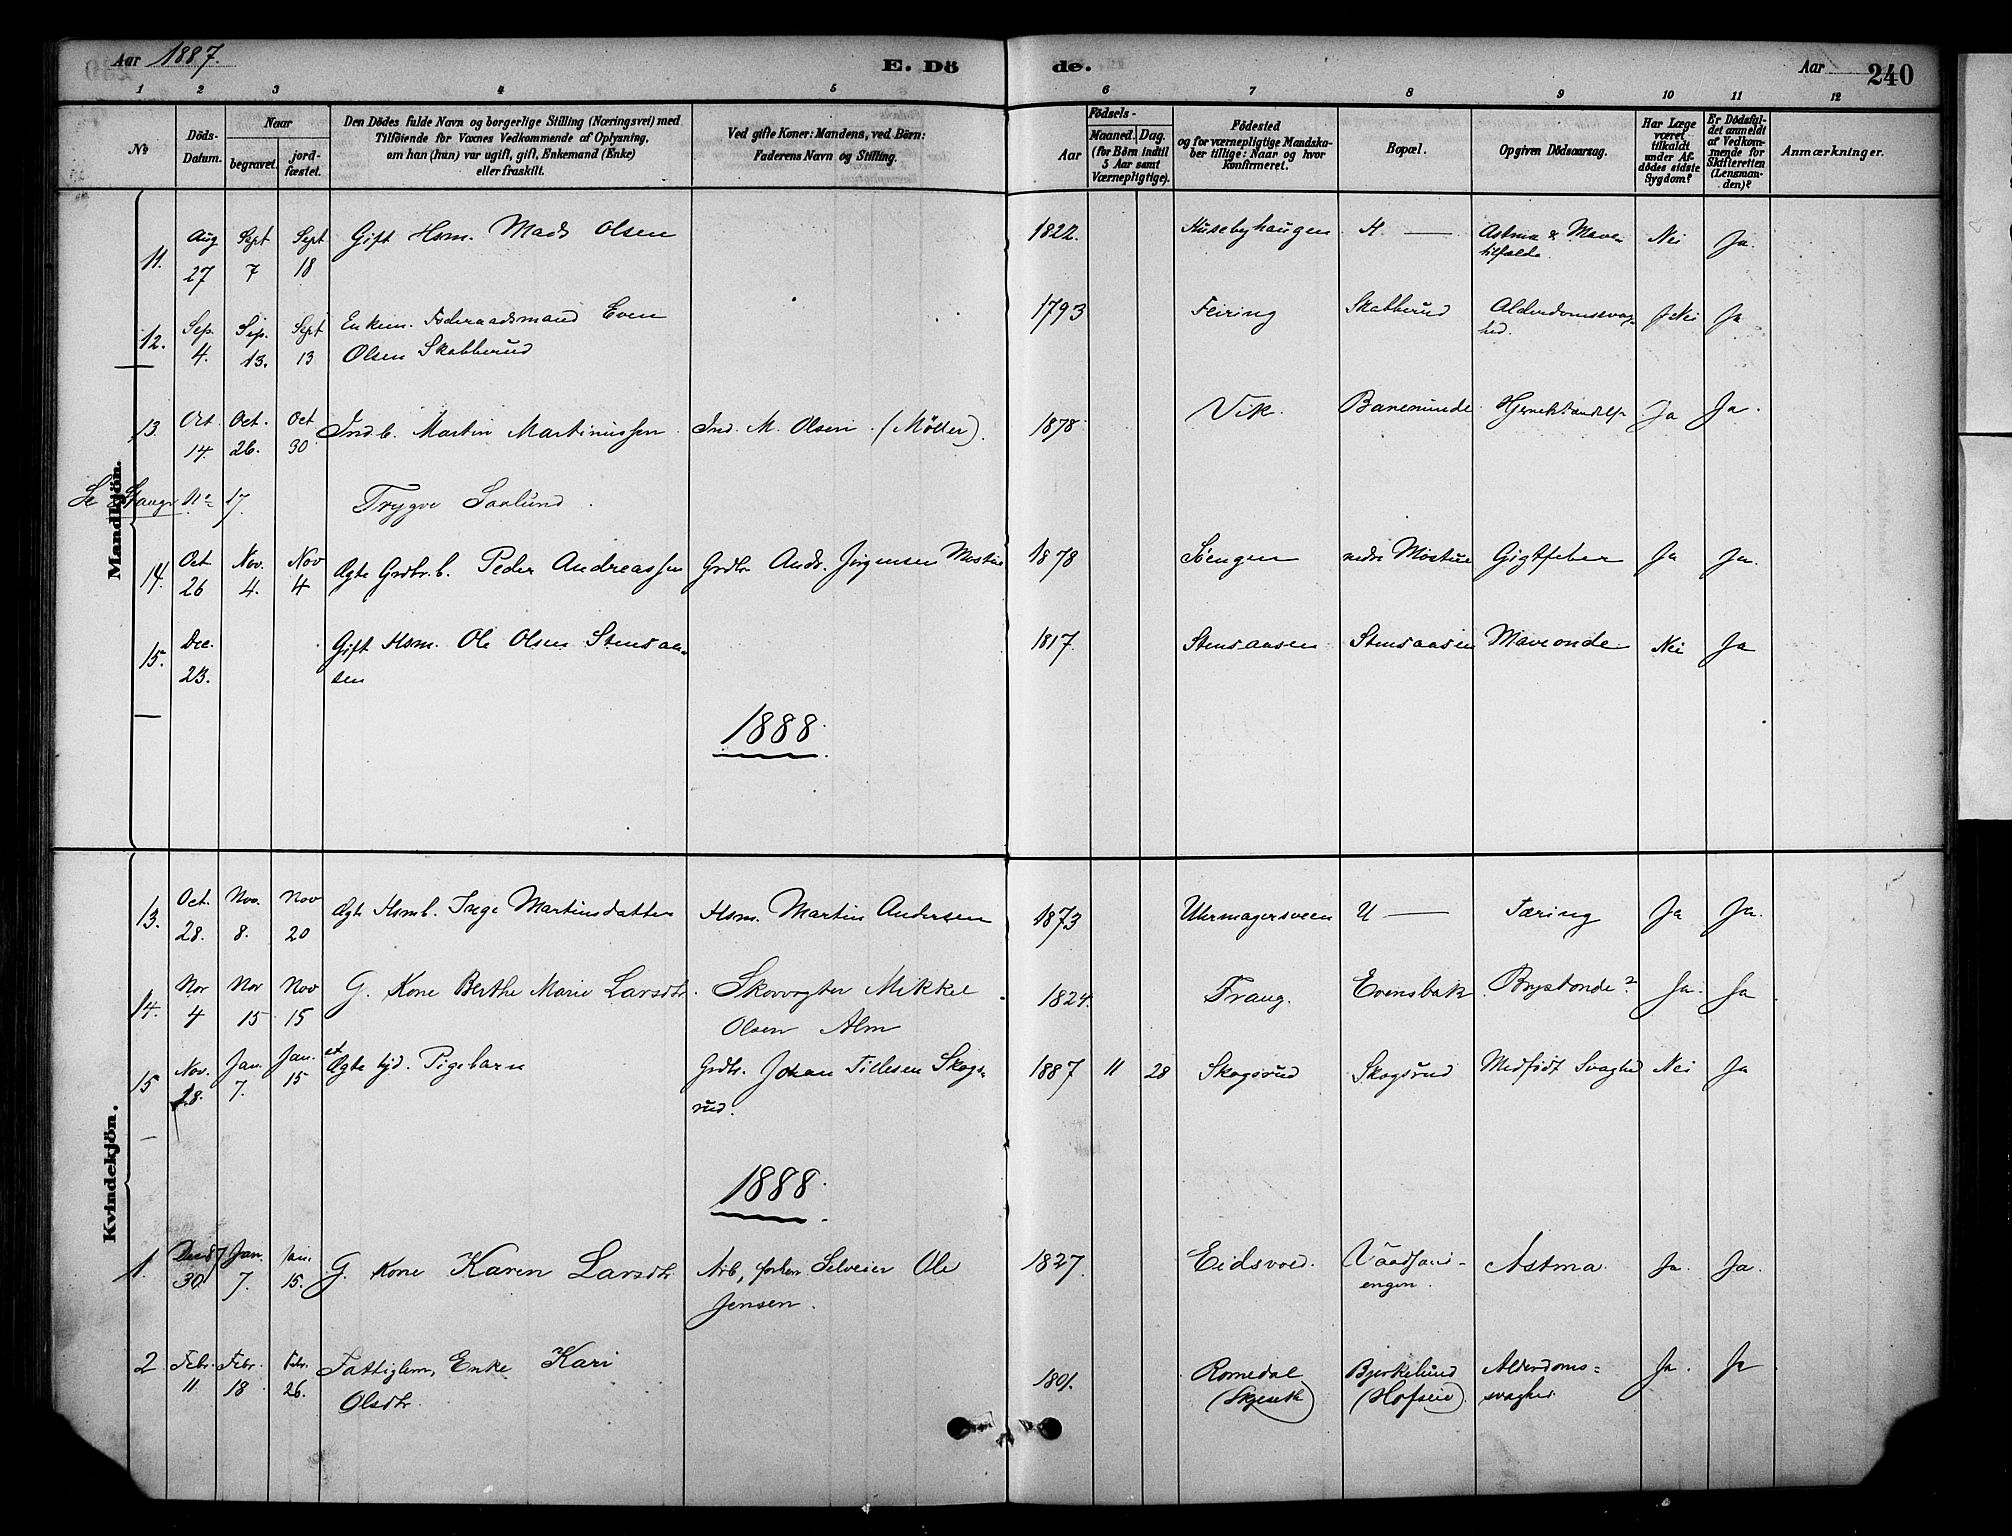 Aar 1887. E. Döde. Aar 240
1 2 3 4 5 6 7 8 9 10 11 12
№
Döds-Datum.
Naar
begravet.
jord-fæstet.
Den Dödes fulde Navn og borgerlige Stilling (Næringsvei) med
Tilföiende for Voxnes Vedkommende af Oplysning,
om han (hun) var ugift, gift, Enkemand (Enke)
eller fraskilt.
Ved gifte Koner: Mandens, ved Börn:
Faderens Navn og Stilling.
Födsels-
Aar
Maaned. Dag.
(for Börn indtil
5 Aar samt
Værnepligtige).
Födested
og for værnepligtige Mandska-
ber tillige: Naar og hvor
konfirmeret.
Bopæl.
Opgiven Dödsaarsag.
Har Læge
været
tilkaldt
under Af-
dödes sidste
Sygdom?
Er Dödsfal-
det anmeldt
af Vedkom-
mende for
Skifteretten
(Lensman-
den)?
Anmærkninger.
Mandkjön.
11. Aug 27 Sept 7 Sept 18 Gift Hsm. Mads Olsen 1822. Husebyhaugen H — Astma & Mave-
tilfælde. Nei Ja.
12. Sep. 4. Sep. 13. Sept 13 Enkem. Føderaadsmand Even
Olsen Skabberud 1793 Feiring Skabberud Alderdomssvag-
hed. Nei Ja
13. Oct. 14. Oct. 26. Oct 30. Ind. b. Martin Martinussen Ind. M. Olsen (Møller). 1878 Vik. Baneminde Ja Ja.
Se Stange No 17 Trygve Saxlund.
14. Oct 26 Nov. 4. Nov 4 Ægte Grdbr. b. Peder Andreassen Grdbr. Ands. Jørgensen Mostue 1878 Sengen nedre Mostue Gigtfeber Ja Ja.
15. Dec. 23. Gift Hsm. Ole Olsen Stensaa-
sen 1817. Stensaasen Stensaasen Maveonde Nei Ja
1888.
Kvindekjön.
13. Oct. 28. Nov. 8. Nov 20 Ægte Hsmb. Inge Martinsdatter Hsm. Martin Andersen 1873 Uhrmagersveen U — Tæring Ja Ja.
14. Nov 4 Nov 15 Nov 15 G. Kone Berthe Marie Larsdtr. Skovvogter Mikkel
Olsen Alm 1824. Traug. Evensbak Brystonde? Ja. Ja
15 Nov. 28. Jan. 7. Jan. 15 et Ægte Pigebarn Grdbr. Johan Tillesen Skogs-
rud. 1887 11 28 Skogsrud Skogsrud Medfødt Svaghed Nei Ja
1888.
1. Dec 87 30 Jan. 7. Jan. 15. G. Kone Karen Larsdtr. Arb, forhen Selveier Ole
Jensen. 1827. Eidsvold. Astma. Ja. Ja.
2 Febr. 11 Febr. 18 Febr. 26. Fattiglem, Enke Kari
Olsdtr. 1801. Romedal
(Skjeseth) Bjerkelund
(Hofseie) Alderdoms-
svaghed Ja. Ja